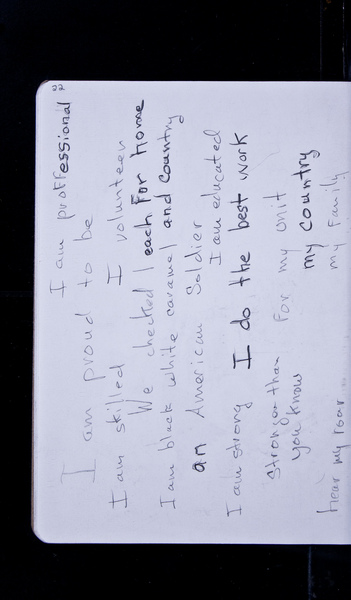 I am proffessional
I am proud to be
I am skilled I volunteer
We checked / each For Home
I am black white caramel and country
an American Soldier
I am educated
I am strong I do the best work
Stronger than For my Unit
you know my country
hear my roar my Family